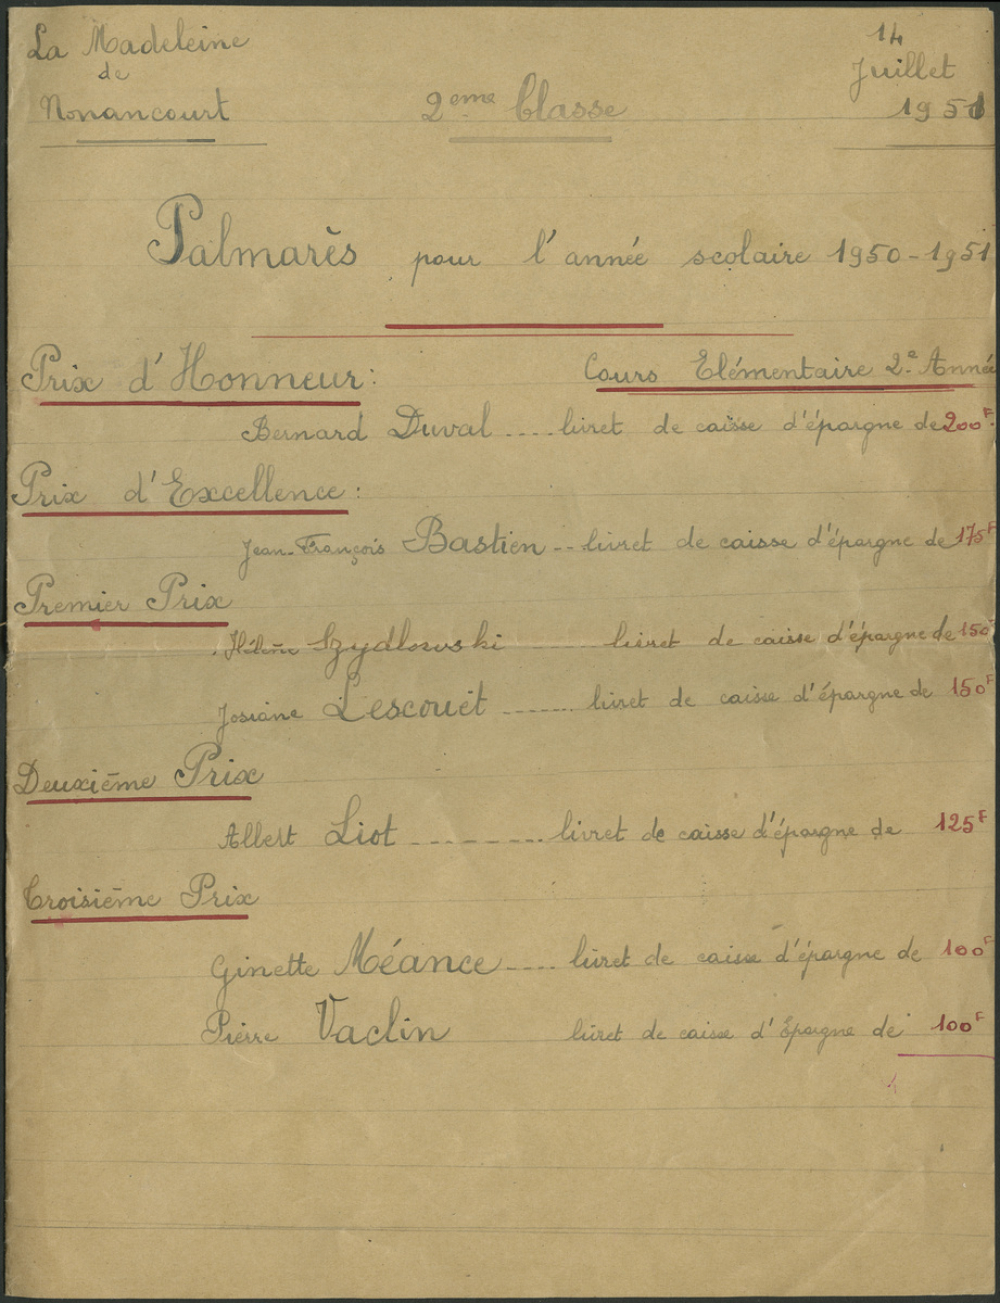 La Madeleine
de
Nonancourt
2eme Classe
14
Juillet
1951
Palmarès pour l'année scolaire 1950-1951
Prix d'Honneur:
Cours Elémentaire 2e Année
Bernard Duval .... livret de caisse d'épargne de 200F
Prix d'Excellence:
Jean-François Bastien -- livret de caisse d'épargne de 175F
Premier Prix
Hélène Szydlowski ------ livret de caisse d'épargne de 150F
Josiane Lescouët ------- livret de caisse d'épargne de 150F
Deuxième Prix
Albert Liot --------- livret de caisse d'épargne de 125F
Troisième Prix
Ginette Méance .... livret de caisse d'épargne de 100F
Pierre Vaclin livret de caisse d'Epargne de 100F